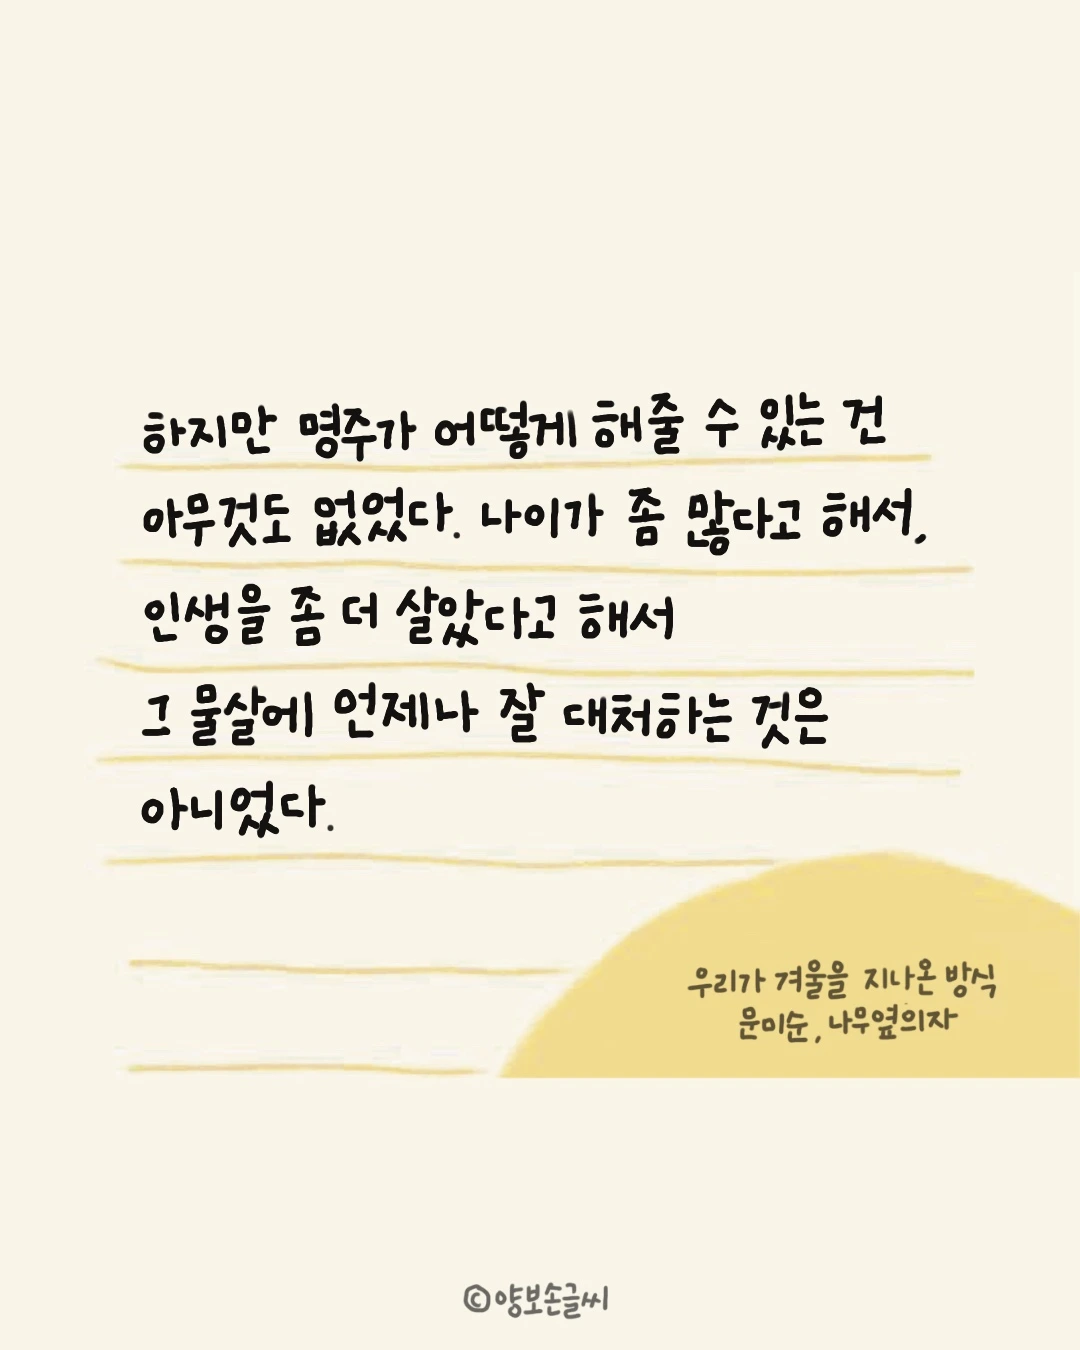 하지만 명주가 어떻게 해줄 수 있는 건
아무것도 없었다. 나이가 좀 많다고 해서,
인생을 좀 더 살았다고 해서
그 물살에 언제나 잘 대처하는 것은
아니었다.
우리가 겨울을 지나온 방식
문미순, 나무옆의자
©양보손글씨